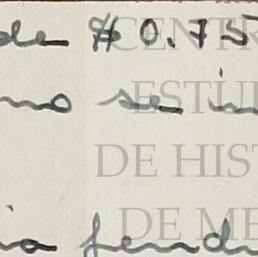 de $ 0.75
no se
CENTR
ESTU
DE HIST
DE ME